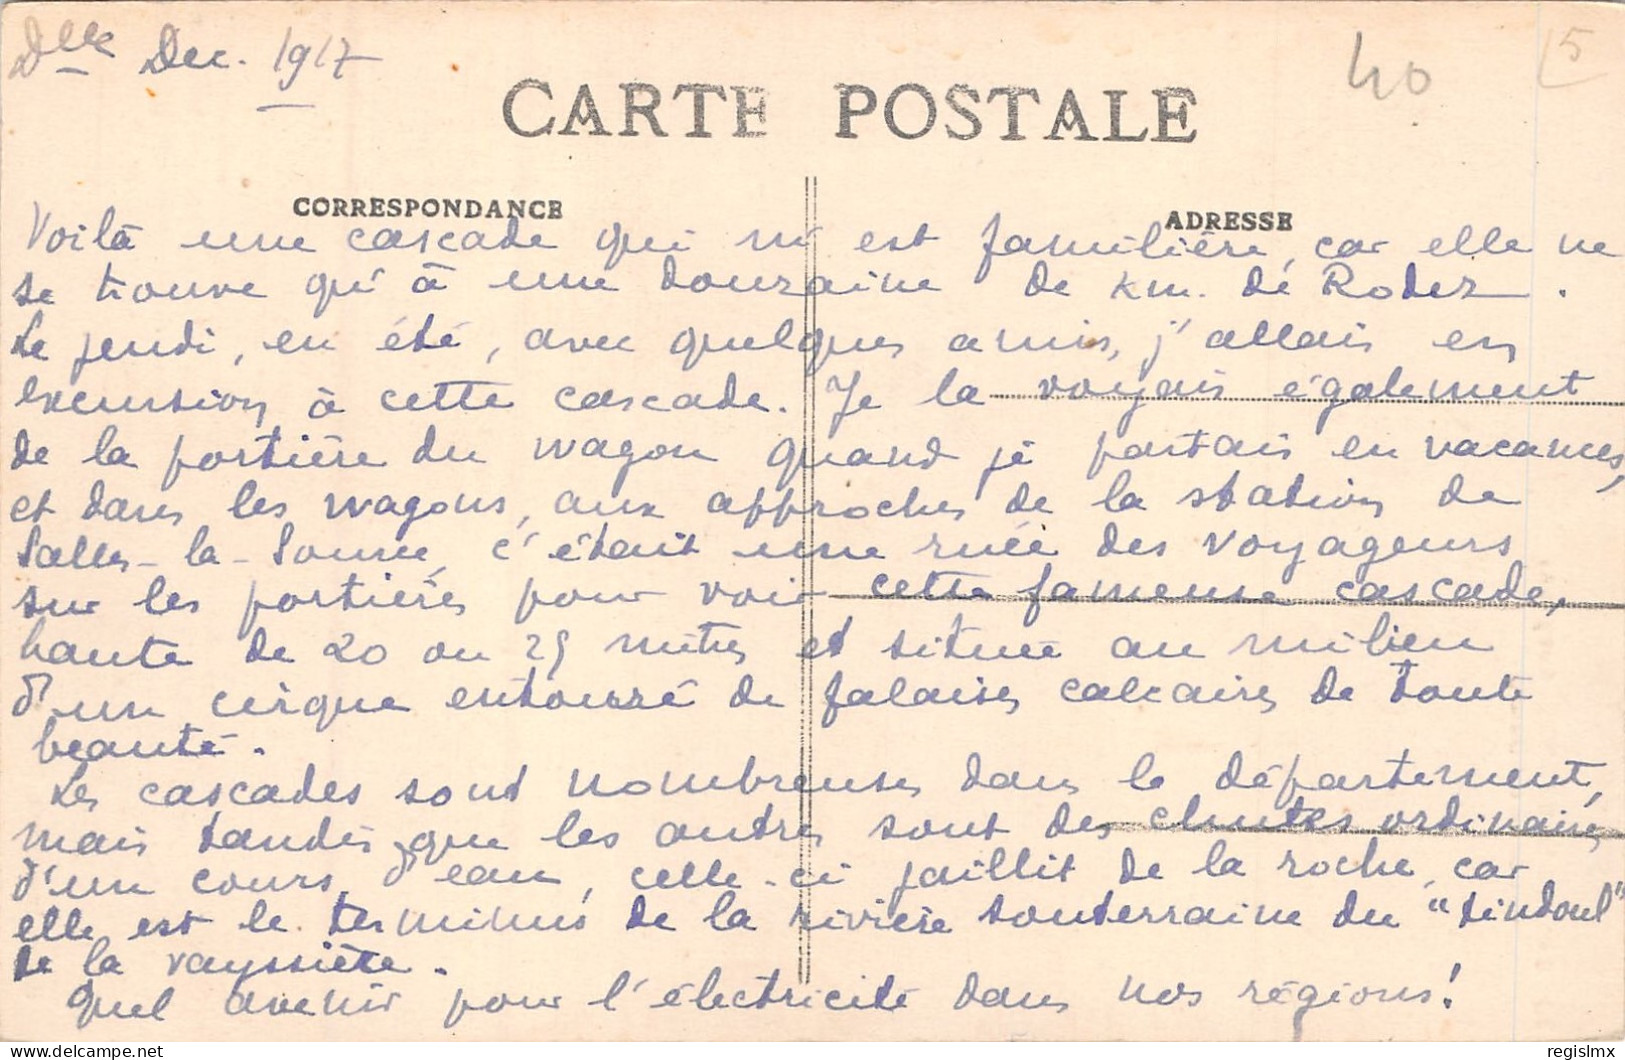 Dlle Dec. 1917
40
5
CARTE POSTALE
CORRESPONDANCE
ADRESSE
Voilà une cascade qui m'est familière, car elle ne
se trouve qu'à une douzaine de Km. de Rodez.
Le jeudi, en été, avec quelques amis, j'allais en
excursion à cette cascade. Je la voyais également
de la portière du wagon quand je partais en vacances,
et dans les wagons, aux approches de la station de
Salles-la-Source, c'était une ruée des voyageurs
sur les portières pour voir cette fameuse cascade,
haute de 20 ou 25 mètres et située au milieu
d'un cirque entouré de falaises calcaires de toute
beauté.
Les cascades sont nombreuses dans le département,
mais tandis que les autres sont des chutes ordinaires
d'un cours d'eau, celle-ci jaillit de la roche, car
elle est le terminus de la rivière souterraine du "tindoul"
de la vayssière.
Quel avenir pour l'électricité dans nos régions!
regislmx